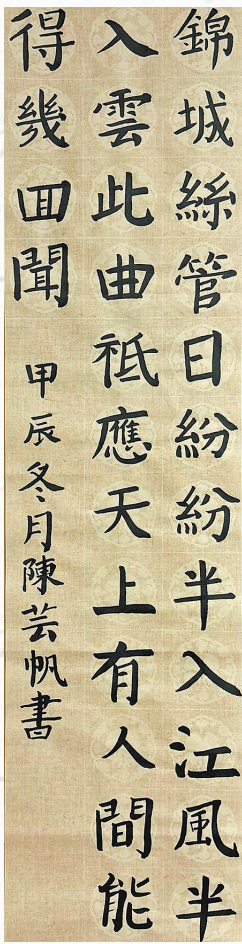 錦城絲管日紛紛半入江風半
入雲此曲祗應天上有人間能
得幾回聞
甲辰冬月陳芸帆書